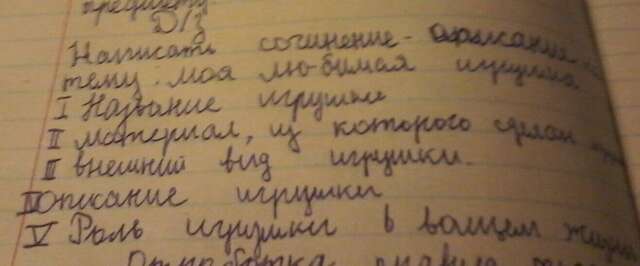 предмету
Д/з
Написать сочинение-описание на
тему. моя любимая игрушка
I Название игрушки
II материал, из которого сделан
III внешний вид игрушки.
IV Описание игрушки
V Роль игрушки в вашем жизни